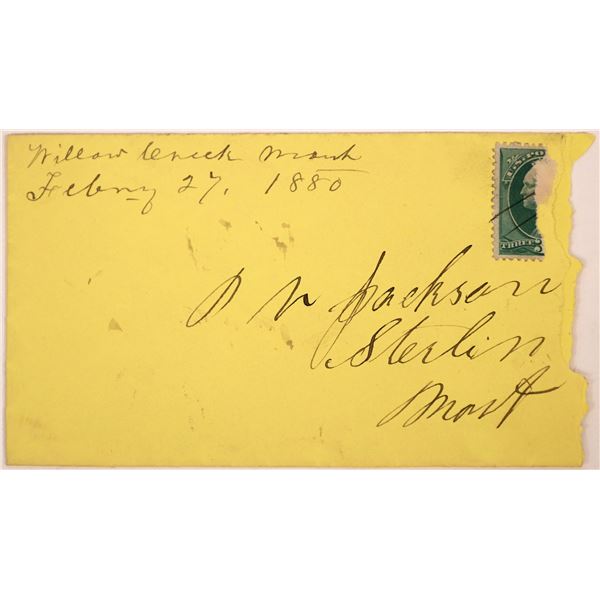 Willow Creek Mont
Febry 27. 1880
U.S. PO
THREE
Jackson
Sterlin
Mont